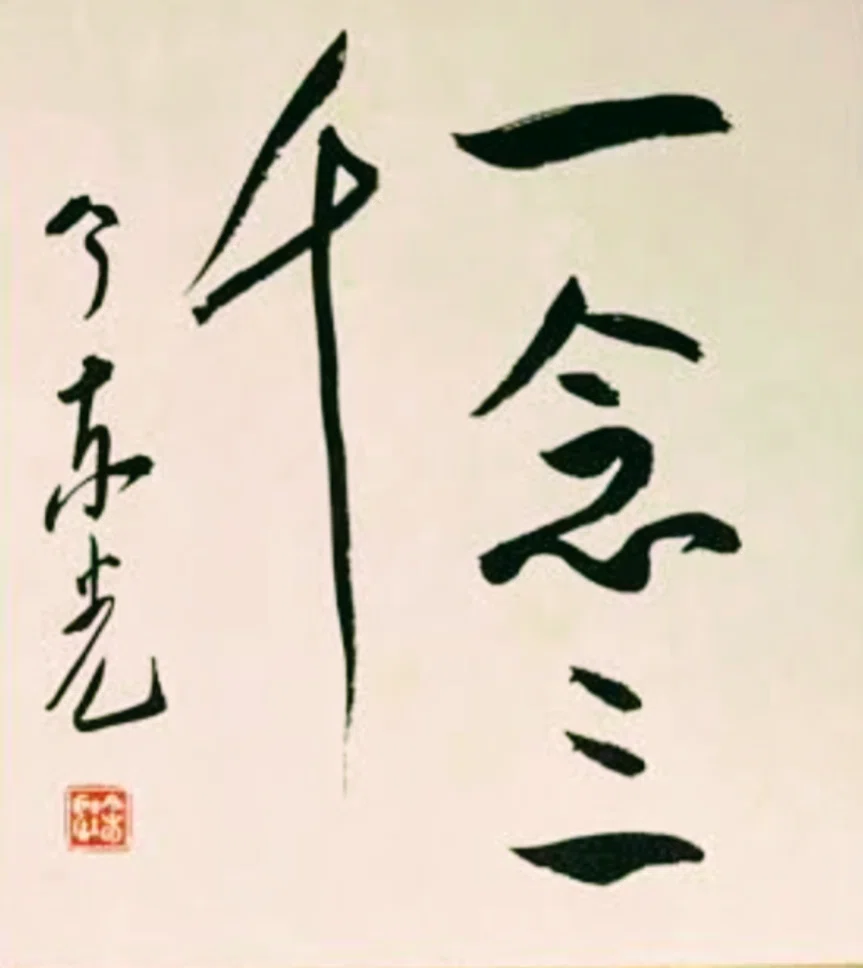 一念三
千
今東光